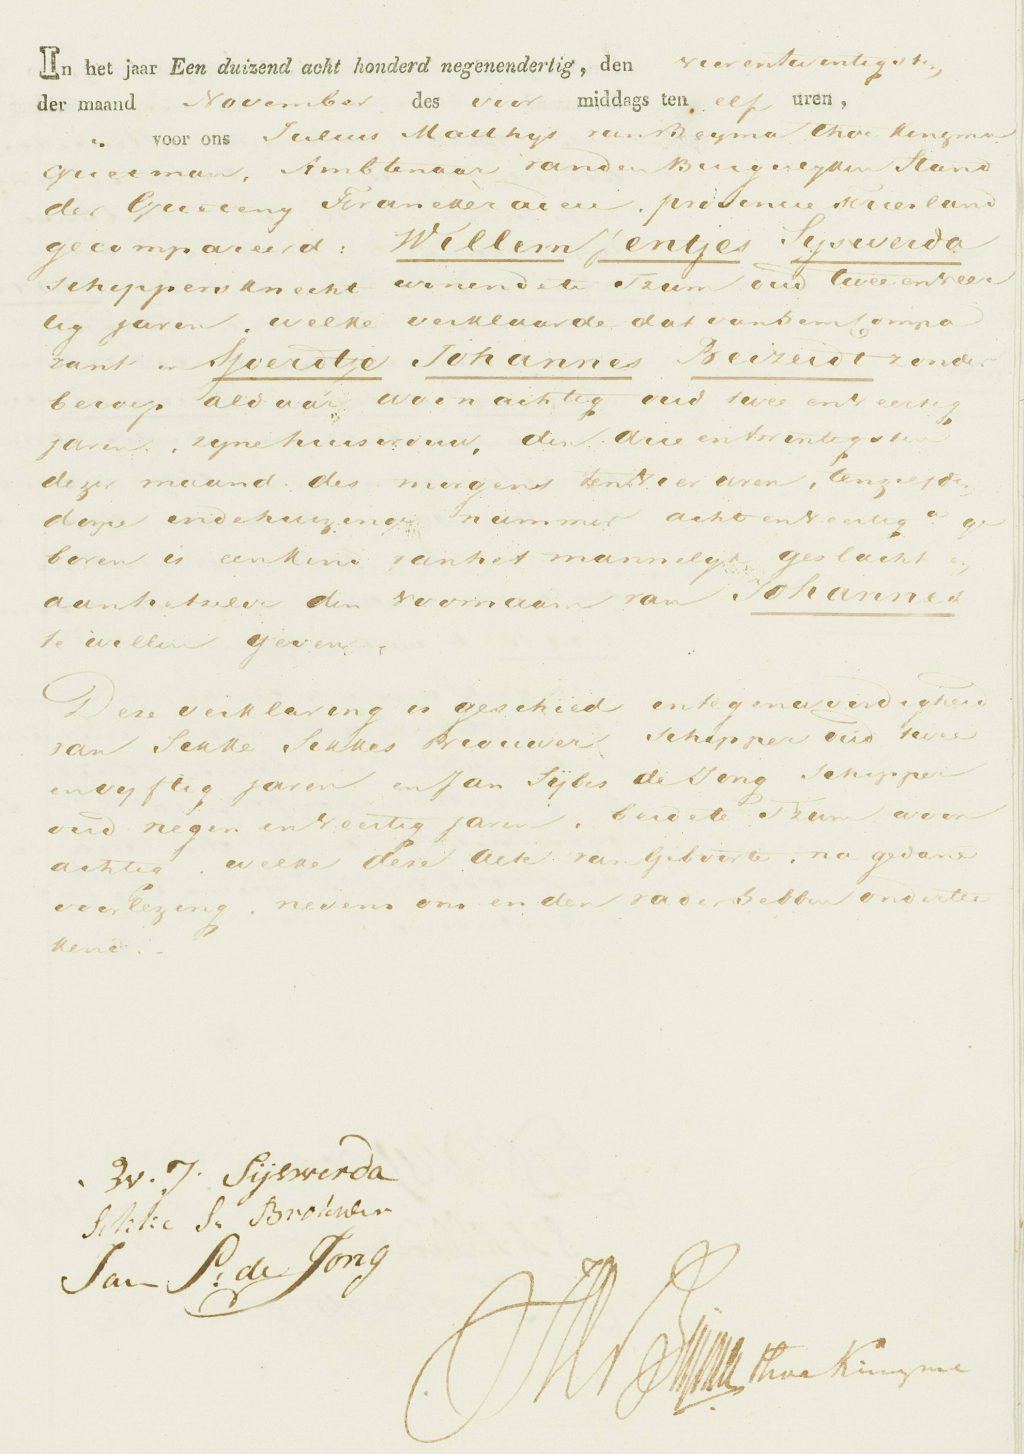 In het jaar Een duizend acht honderd negenendertig, den vierentwintigsten
der maand November des voor middags ten elf uren,
" voor ons Julius Matthijs van Beijma thoe Kingma
Grietman, Ambtenaar van den Burgerlyken Stand
der Grieteny Franekeradeel, provincie Vriesland
gecompareerd: Willem Jentjes Sijswerda
schippersknecht wonende te Tzum oud twee en veer
tig jaren, welke verklaarde dat van hem Compa
rant en Sjoerdtje Johannes Breizeidt zonder
beroep aldaar woonachtig oud twee en veertig
jaren, zyne huisvrouw, den drie en twintigsten
dezer maand des morgens ten vier uren, tenzelfden
dorpe in de huizinge nummer acht en veertig a ge
boren is een kind van het mannelyk geslacht en
aan hetzelve den voornaam van Johannes
te willen geven.
Deze verklaring is geschied in tegenwoordigheid
van Sekke Sekkes Brouwer, schipper oud twee
en vyftig jaren en Jan Sijbes de Jong schipper
oud negen en veertig jaren, beide te Tzum woon
achtig, welke deze Acte van Geboorte, na gedane
voorlezing, nevens ons en den vader hebben ondertee
kend.
W. J. Sijswerda
Sekke S. Brouwer
Jan S. de Jong
thoe Kingma